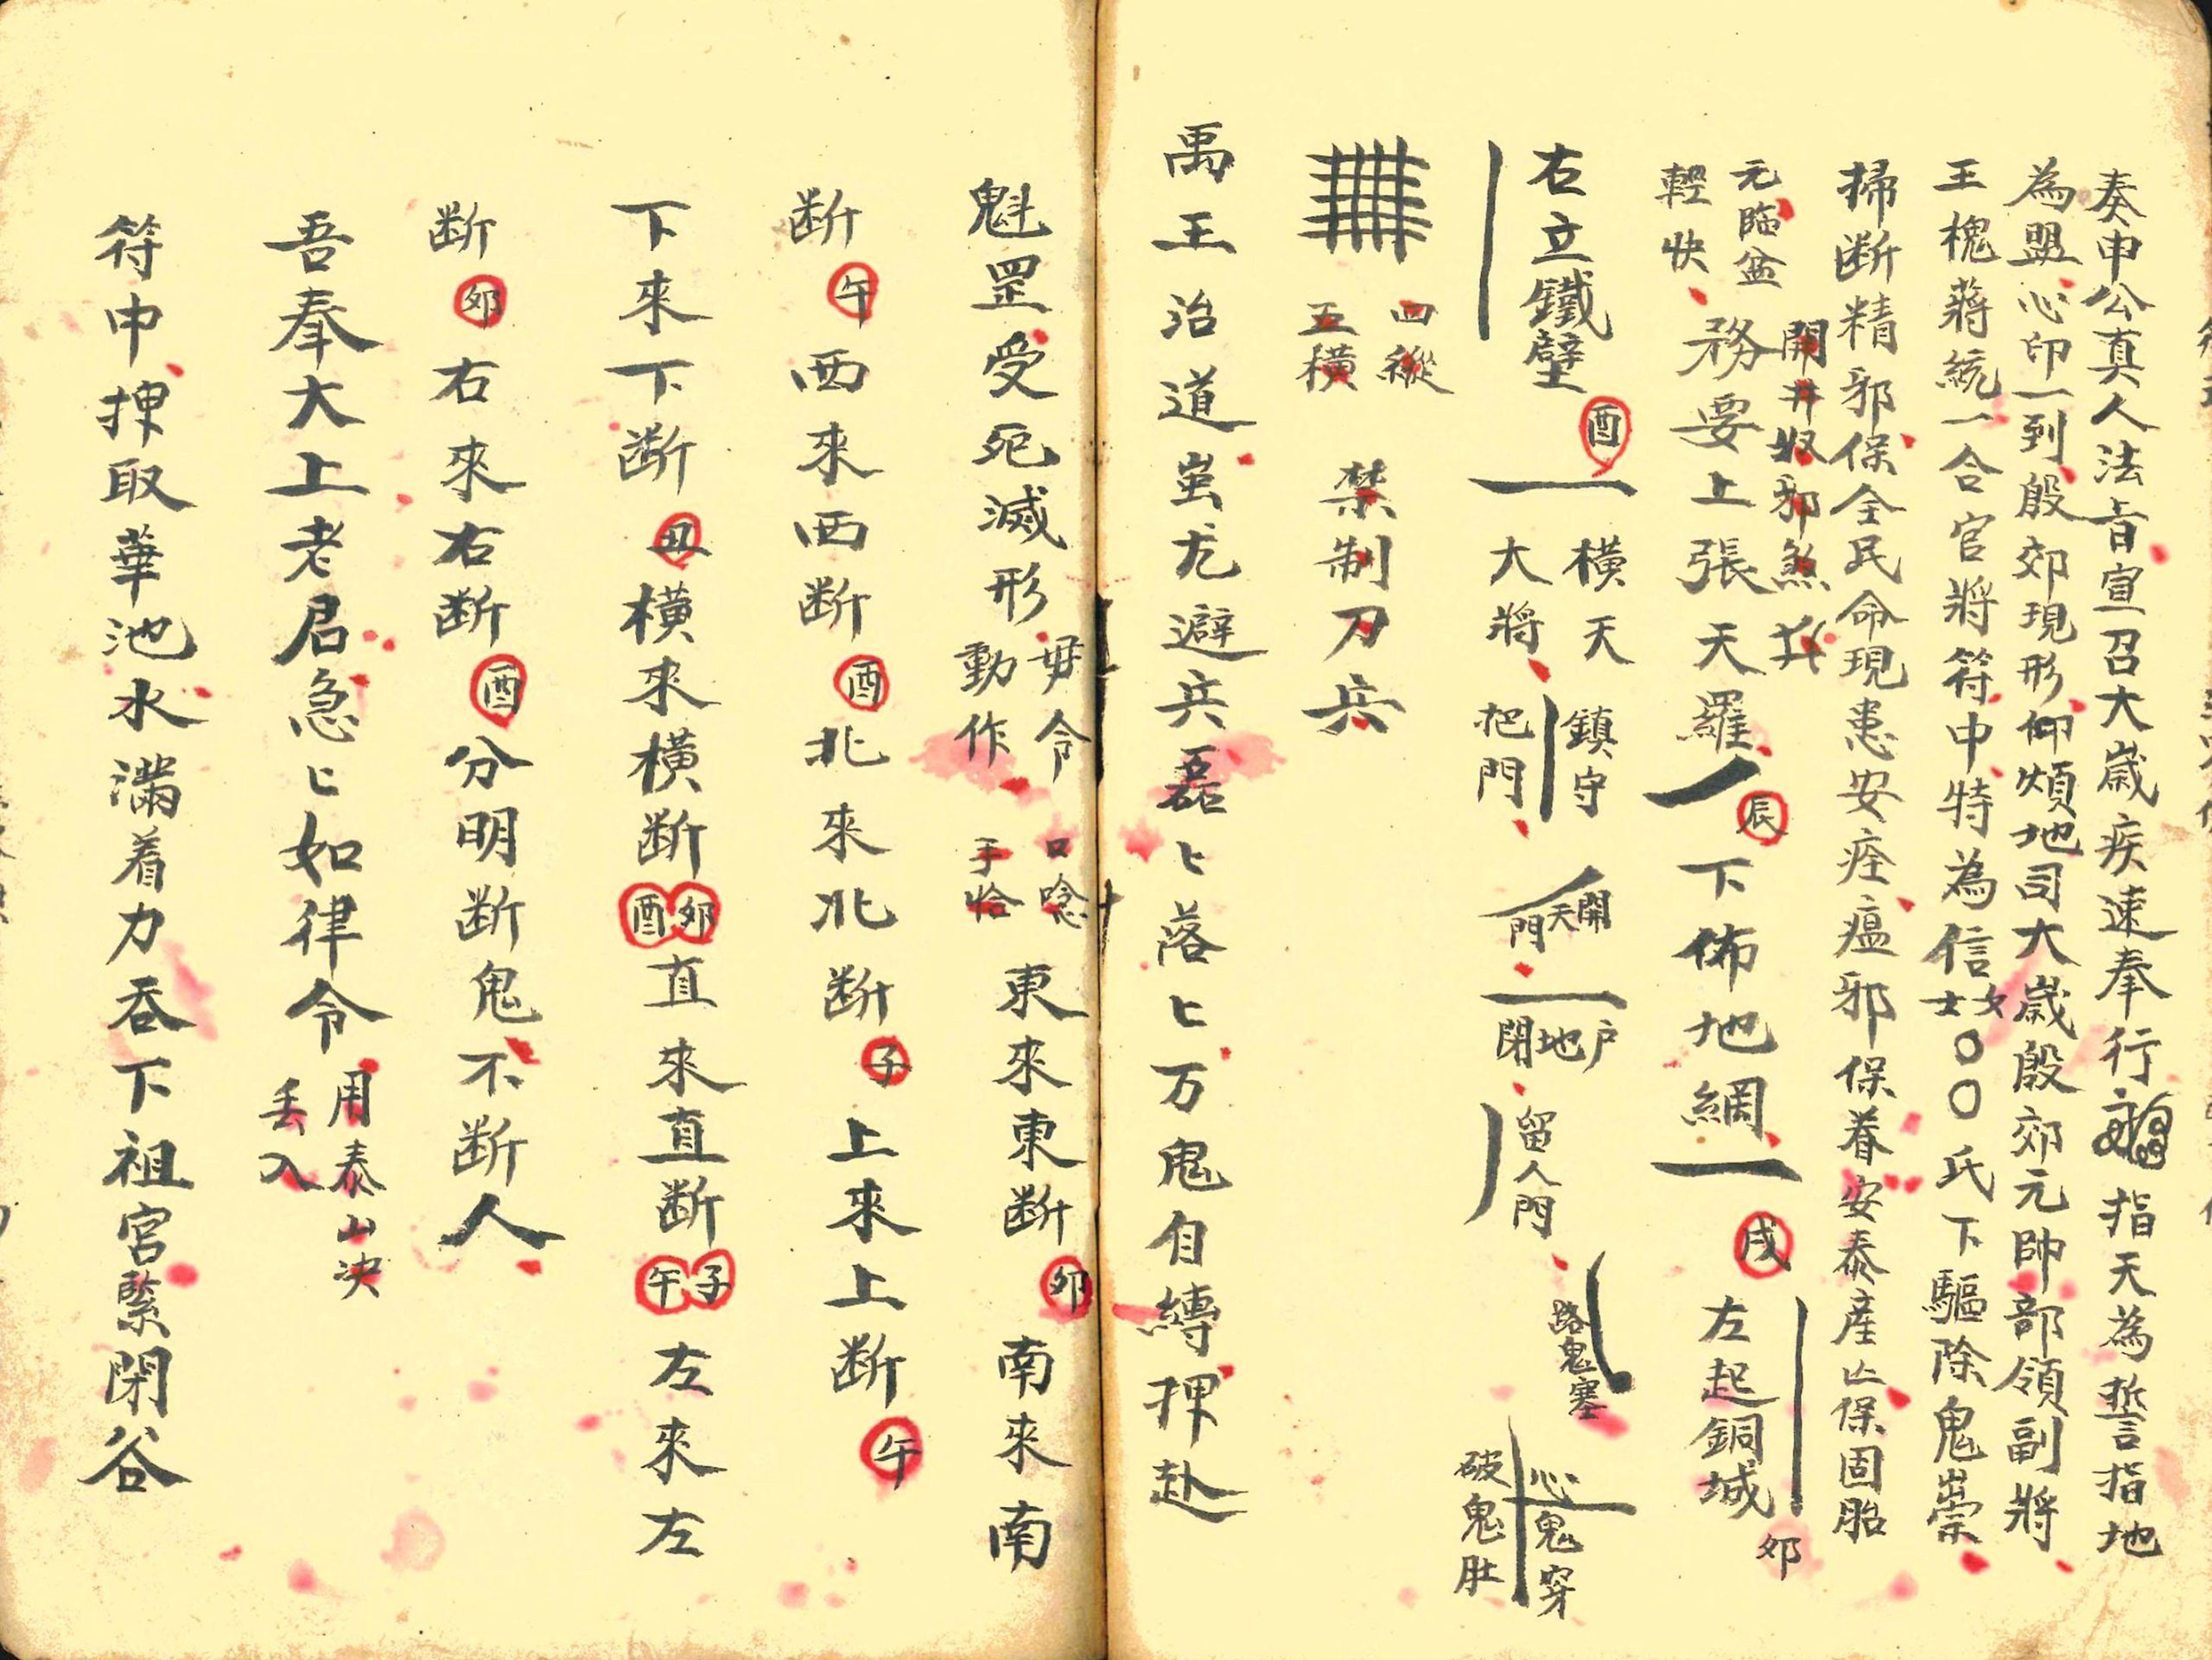 奏申公真人法旨宣召大歲疾速奉行 指天為誓指地
為盟心印一到殷郊現形仰煩地司大歲殷郊元帥部領副將
王槐蔣統一合官將符中特為信士女〇〇氏下驅除鬼祟
掃断精邪保全民命現患安痊瘟邪保眷安泰產亡保固胎
元臨盆
輕快
開井收邪煞
務要上張天羅 辰 下佈地網 戌 左起銅城 卯
右立鐵壁 酉 橫天
大將
鎮守
把門
開天門
閉地户
留人門
塞鬼路
穿鬼心
破鬼肚
四縱
五橫
禁制刀兵
禹王治道蚩尤避兵磊匕落匕万鬼自縛押赴
魁罡受死滅形
毋令
動作
口唸
手恰
東來東断 卯 南來南
断 午 西來西断 酉 北來北断 子 上來上断 午
下來下断 丑 橫來橫断 卯酉 直來直断 子午 左來左
断 卯 右來右断 酉 分明断鬼不断人
吾奉大上老君急匕如律令
用泰山决
丢入
符中捙取華池水滿着力吞下祖宮緊閉谷